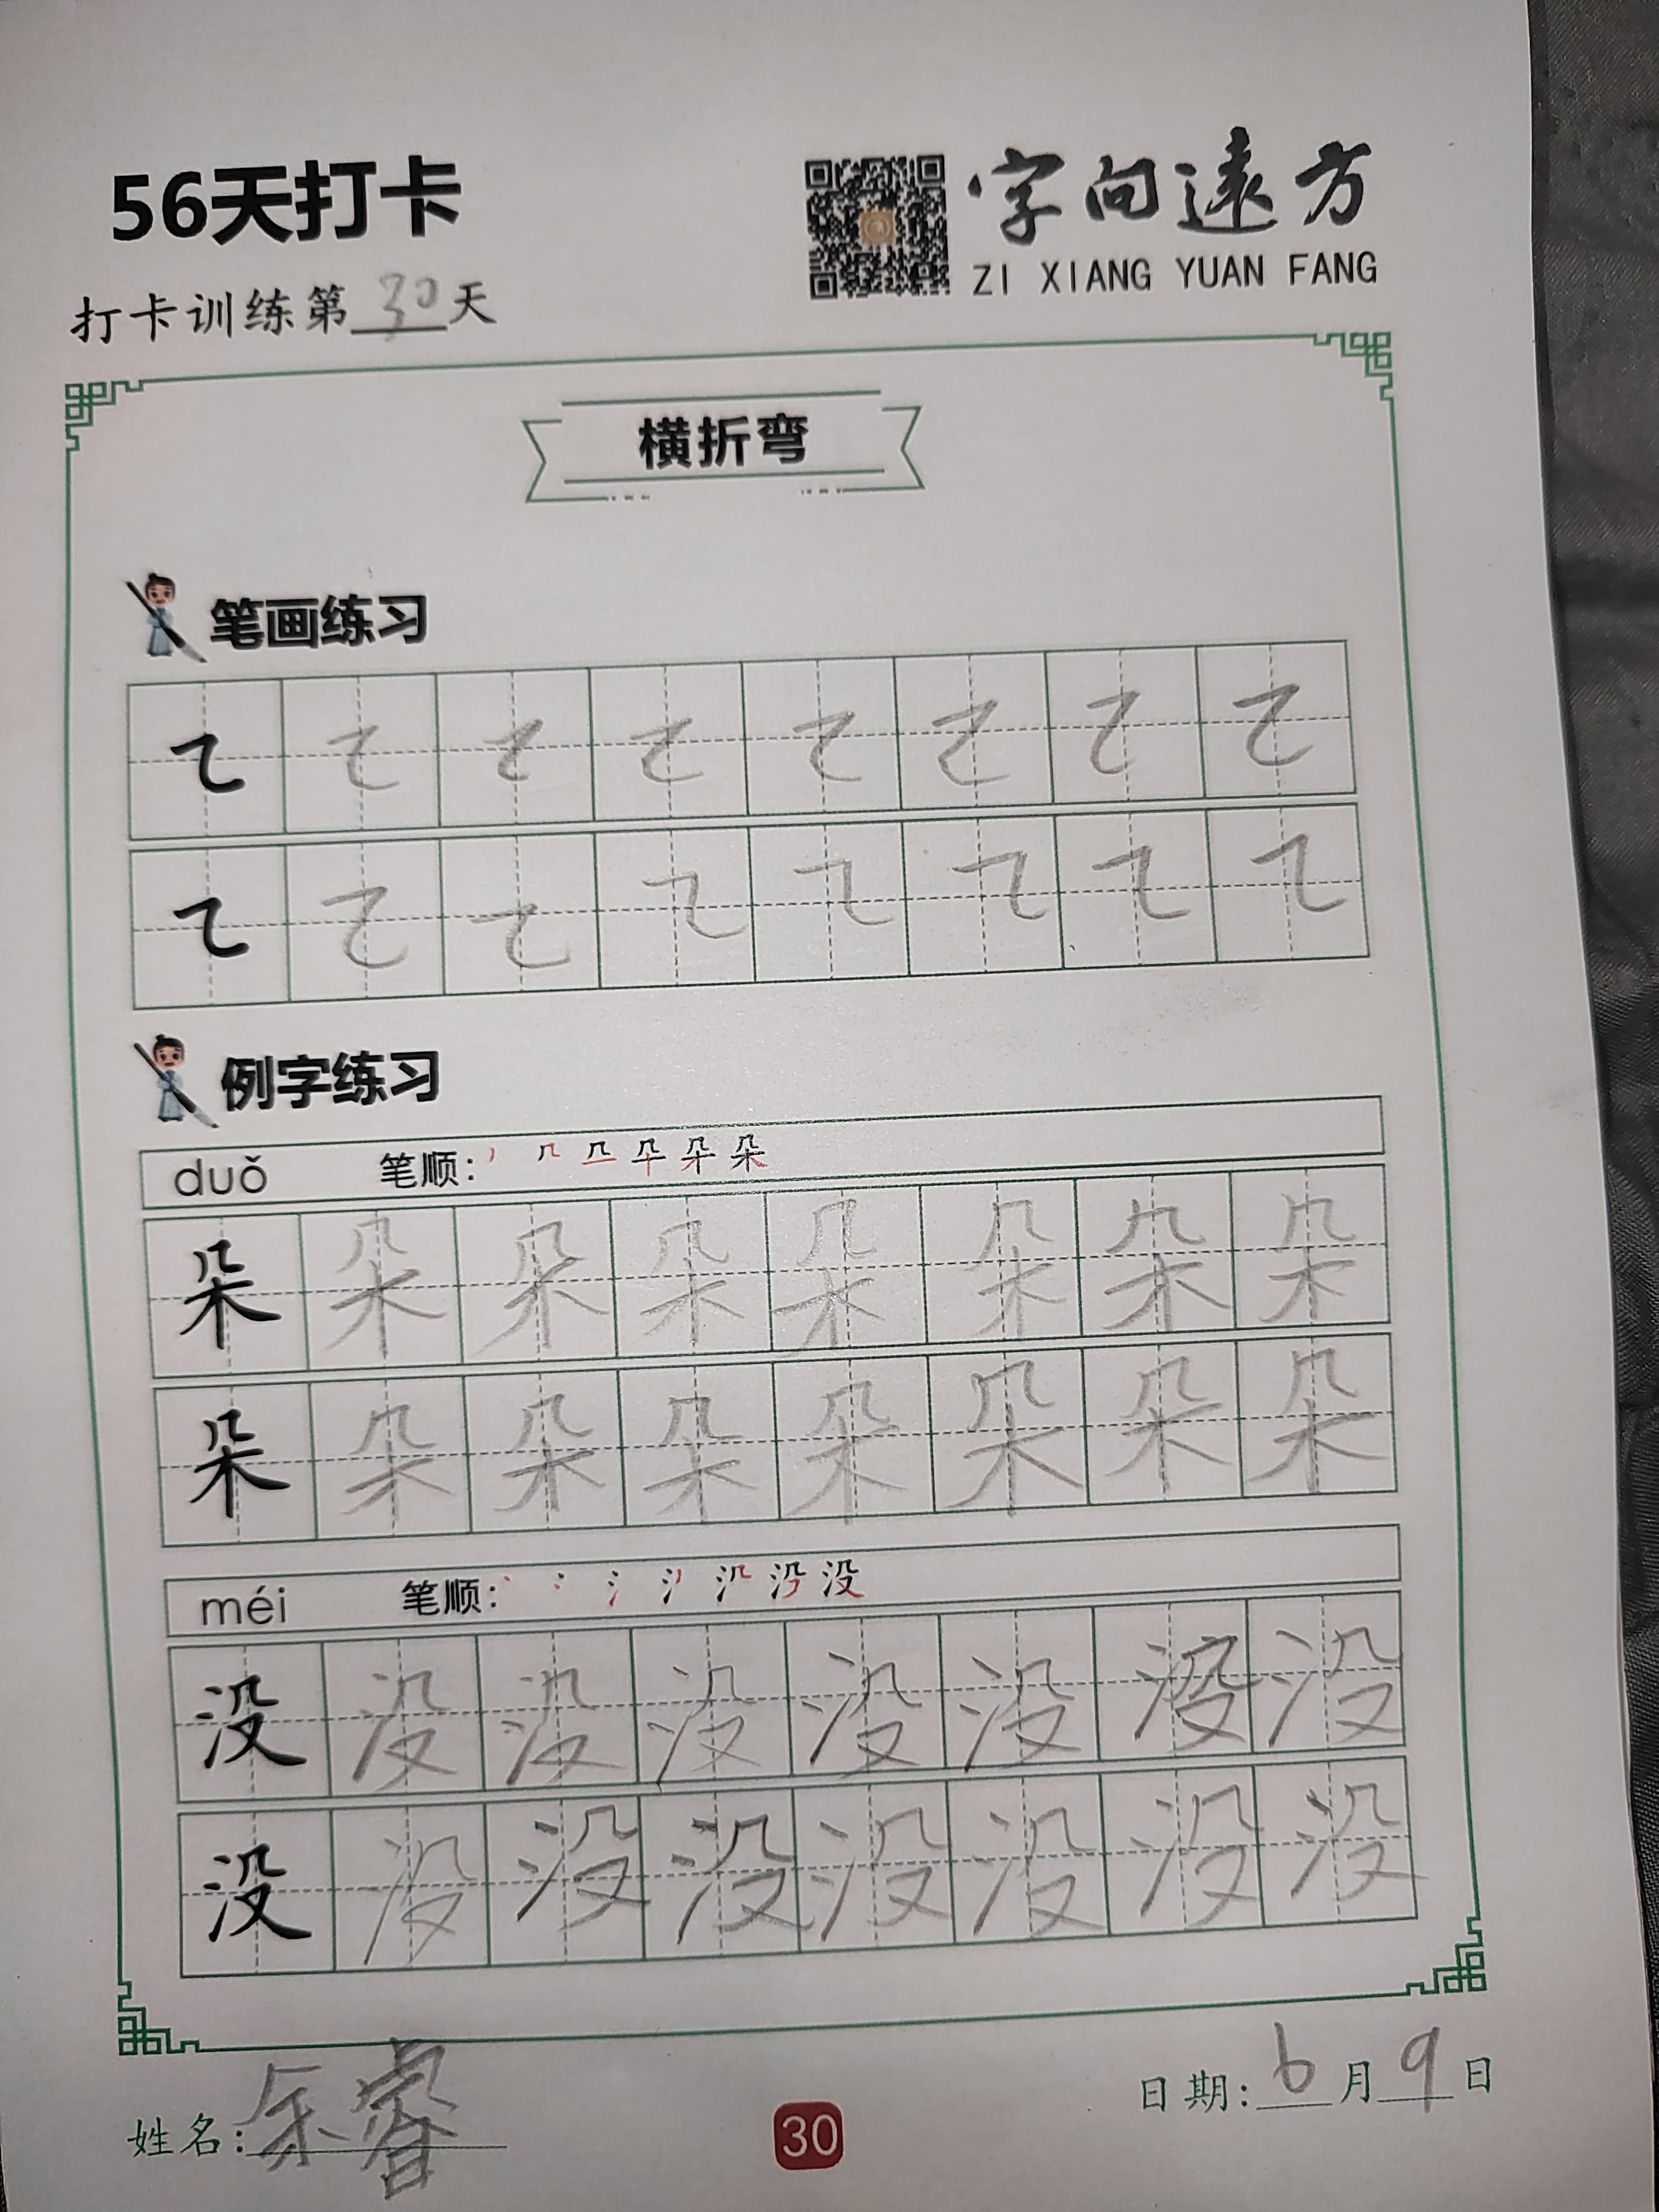 56天打卡
字向遠方
ZI XIANG YUAN FANG
打卡训练第30天
横折弯
笔画练习
例字练习
duǒ 笔顺:
朵 朵 朵 朵 朵 朵 朵 朵
朵 朵 朵 朵 朵 朵 朵 朵
méi 笔顺:
没 没 没 没 没 没 没 没
没 没 没 没 没 没 没 没
姓名: 乐睿
日期: 6月9日
30